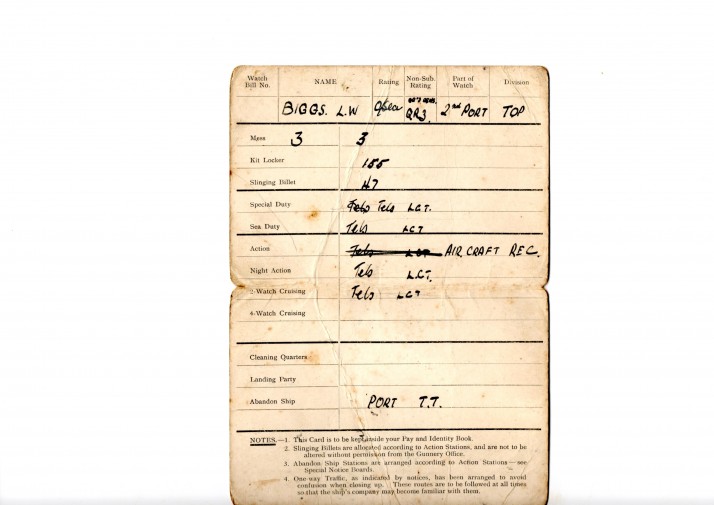 Watch Bill No. NAME Rating Non-Sub. Rating Part of Watch Division
BIGGS. L.W QR3. 2nd PORT TOP
Mess 3 3
Kit Locker 155
Slinging Billet 47
Special Duty Tels Tels L.C.T.
Sea Duty Tels LCT
Action Tels LCT AIR CRAFT REC.
Night Action Tels L.C.T.
2-Watch Cruising Tels LCT
4-Watch Cruising
Cleaning Quarters
Landing Party
Abandon Ship PORT T.T.
NOTES.—1. This Card is to be kept inside your Pay and Identity Book.
2. Slinging Billets are allocated according to Action Stations, and are not to be
altered without permission from the Gunnery Office.
3. Abandon Ship Stations are arranged according to Action Stations—see
Special Notice Boards.
4. One-way Traffic, as indicated by notices, has been arranged to avoid
confusion when closing up. These routes are to be followed at all times
so that the ship's company may become familiar with them.